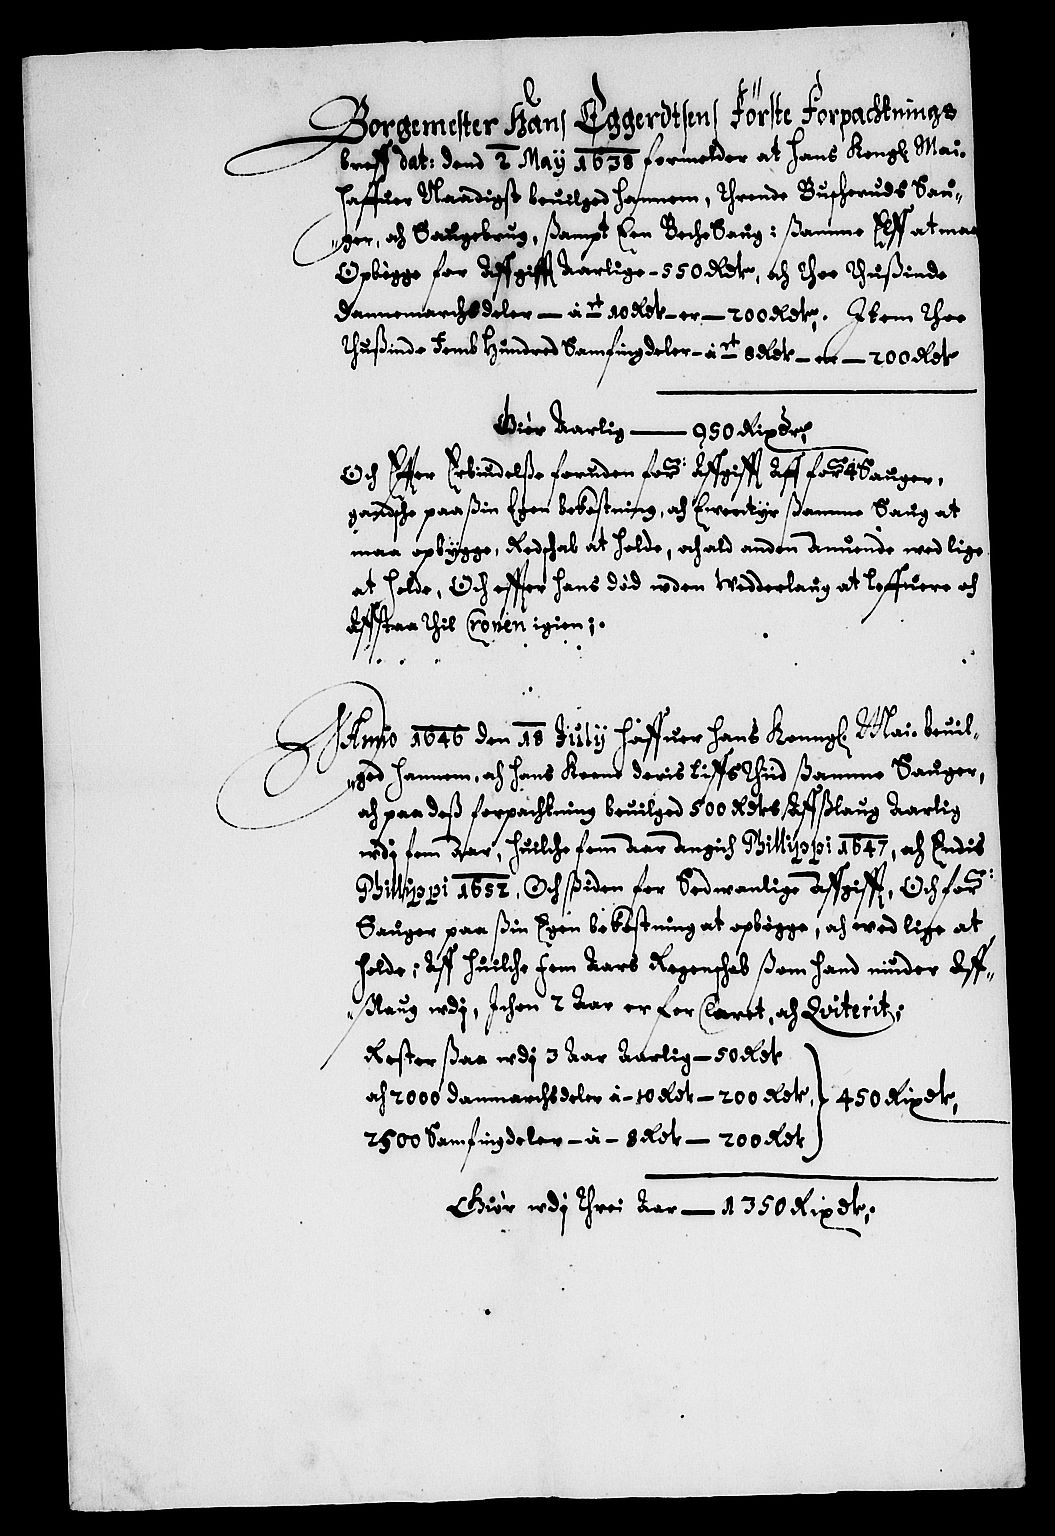 Borgemester Hans Eggerdtsens Förste Forpachtnings
breff dat: dend 2 May 1638 formelder at hans Kongl Mai.
haffuer Naadigst beuilged hannem, thrende Buscheruds Sau„
„ger, och Saugebrug, sampt Een BecheSaug: samme Elff at maa
Opbögge for Affgifft Aarlige – 550 Rdr, och thoe thusinde
Dannemarchsdeler — à rt 10 Rdr – er — 200 Rdr. Item thoe
thusinde Fembhundred Samfingdeler – à rt 8 Rdr – er — 200 Rdr
Giör Aarlig —— 950 Rixdr
Och Effter Erbiudelse foruden for: Affgifft Aff for: 4 Sauger,
gandsche paa sin Egen bekostning, och samme Saug at
maa opbÿgge, Redschab at holde, och ald anden anuende wed lige
at holde, Och effter hans död uden Wedderlaug at leffuere och
Affstaa thil Cronen igien;.
Anno 1646 den 18 July haffuer hans Konngl. Mai. beuil„
„ged hannem, och hans Kone deris liffs thiid samme Sauger,
och paa dess forpachtning beuilged 500 Rdrs Affslaug Aarlig
udj fem Aar, huilche fem Aar angich Phillippi 1647, och Endis
Phillippi 1652, Och siden for Sedwanlige Affgifft, Och for:
Sauger paa sin Egen bekostning at opbögge, och wed lige at
holde; Aff huilche fem Aars Regenschab som hand niuder Aff„
„slaug udj, Ichon 2 Aar er for Claret, och Qviterit;
Rester saa udj 3 Aar Aarlig – 50 Rdr
och 2000 Danmarchsdeler à – 10 Rdr – 200 Rdr, } 450 Rixdr,
2500 Samfingdeler – à – 8 Rdr — 200 Rdr
Giör udj threi Aar — 1350 Rixdr;